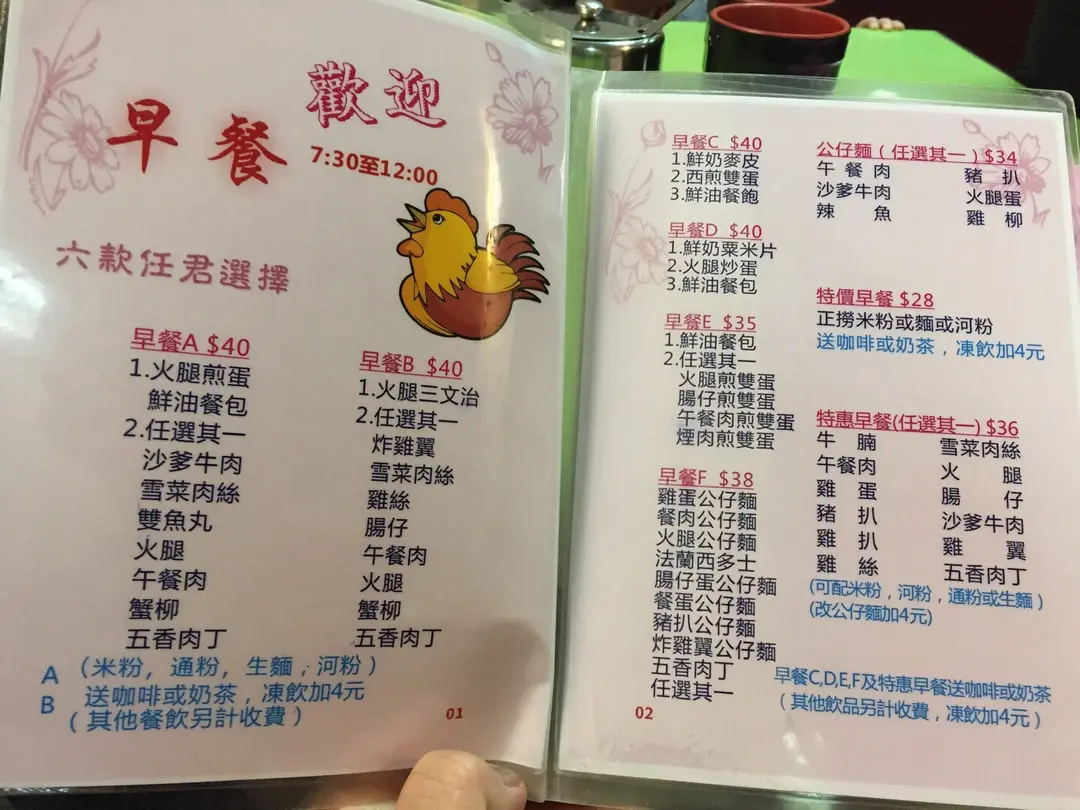 歡迎
早餐
7:30至12:00
六款任君選擇
早餐A $40
1.火腿煎蛋
鮮油餐包
2.任選其一
沙爹牛肉
雪菜肉絲
雙魚丸
火腿
午餐肉
蟹柳
五香肉丁
早餐B $40
1.火腿三文治
2.任選其一
炸雞翼
雪菜肉絲
雞絲
腸仔
午餐肉
火腿
蟹柳
五香肉丁
A (米粉，通粉，生麵，河粉)
B 送咖啡或奶茶，凍飲加4元
(其他餐飲另計收費)
01
早餐C $40
1.鮮奶麥皮
2.西煎雙蛋
3.鮮油餐飽
早餐D $40
1.鮮奶粟米片
2.火腿炒蛋
3.鮮油餐包
早餐E $35
1.鮮油餐包
2.任選其一
火腿煎雙蛋
腸仔煎雙蛋
午餐肉煎雙蛋
煙肉煎雙蛋
早餐F $38
雞蛋公仔麵
餐肉公仔麵
火腿公仔麵
法蘭西多士
腸仔蛋公仔麵
餐蛋公仔麵
豬扒公仔麵
炸雞翼公仔麵
五香肉丁
任選其一
02
公仔麵(任選其一)$34
午餐肉 豬扒
沙爹牛肉 火腿蛋
辣魚 雞柳
特價早餐 $28
正撈米粉或麵或河粉
送咖啡或奶茶，凍飲加4元
特惠早餐(任選其一) $36
牛腩 雪菜肉絲
午餐肉 火腿
雞蛋 腸仔
豬扒 沙爹牛肉
雞扒 雞翼
雞絲 五香肉丁
(可配米粉，河粉，通粉或生麵)
(改公仔麵加4元)
早餐C,D,E,F及特惠早餐送咖啡或奶茶
(其他飲品另計收費，凍飲加4元)